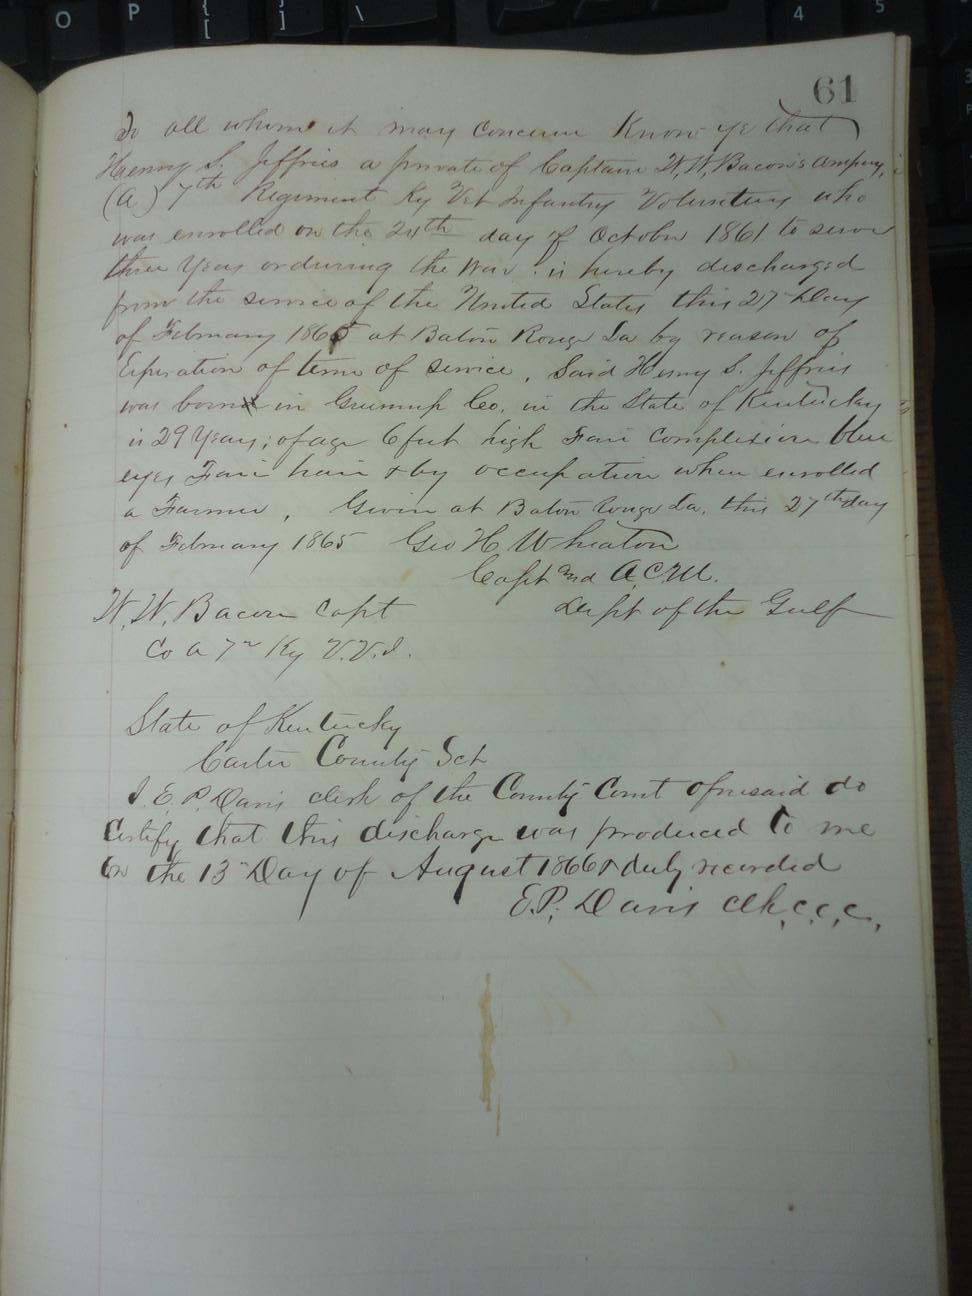 O P { [ } ] \ 4 5
61
To all whom it may Concern Know ye that
Henry S. Jeffries a private of Captain W, W, Bacon's Company,
(A) 7th Regiment Ky Vet Infantry Volunteers who
was enrolled on the 24th day of October 1861 to serve
three Years or during the War is hereby discharged
from the service of the United States this 27 Day
of February 1865 at Baton Rouge La by reason of
Expiration of term of service, Said Henry S. Jeffries
was born in Greenup Co, in the State of Kentucky
is 29 Years, of age 6 feet high Fair Complexion blue
eyes Fair hair & by occupation when enrolled
a Farmer, Given at Baton rouge La, this 27th day
of February 1865 Geo H Wheaton
Capt and A.C.M.
W, W, Bacon Capt Dept of the Gulf
Co A 7th Ky V.V.I.
State of Kentucky
Carter County Sct
I. E. P. Davis clerk of the County Court aforesaid do
Certify that this discharge was produced to me
On the 13 Day of August 1866 & duly recorded
E. P. Davis Clk, C, C, C,